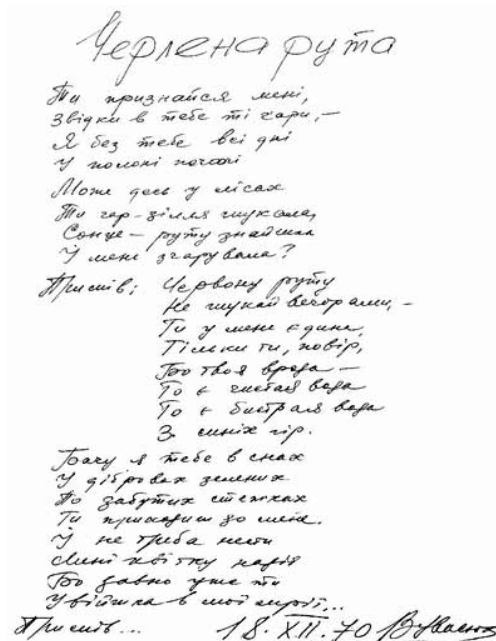 Черлена рута
Ти признайся мені,
Звідки в тебе ті чари, –
Я без тебе всі дні
У полоні печалі
Може десь у лісах
Ти чар-зілля шукала,
Сонце – руту знайшла
І мене зчарувала?
Приспів: Червону руту
Не шукай вечорами, –
Ти у мене єдина,
Тільки ти, повір,
Бо твоя врода –
То є чистая вода
То є бистрая вода
З синіх гір.
Бачу я тебе в снах
У дібровах зелених
По забутих стежках
Ти приходиш до мене.
І не треба нести
Мені квітку надій
Бо давно уже ти
Увійшла в мої мрії...
Приспів...
18. XII. 70